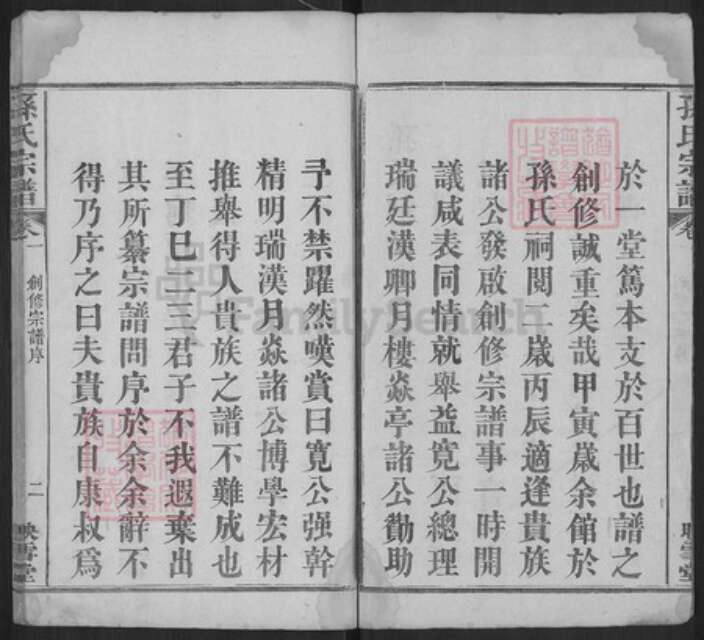 於一堂篤本支於百世也譜之
創修誠重矣哉甲寅歲余館於
孫氏祠閱二歲丙辰適逢貴族
諸公發啟創修宗譜事一時開
議咸表同情就舉益寬公總理
瑞廷漢卿月樓焱亭諸公勷助
予不禁躍然嘆賞曰寬公强幹
精明瑞漢月焱諸公博學宏材
推舉得人貴族之譜不難成也
至丁巳二三君子不我遐棄出
其所纂宗譜問序於余余辭不
得乃序之曰夫貴族自康叔為
孫氏宗譜
卷一
創修宗譜序
二
映雪堂
FamilySearch